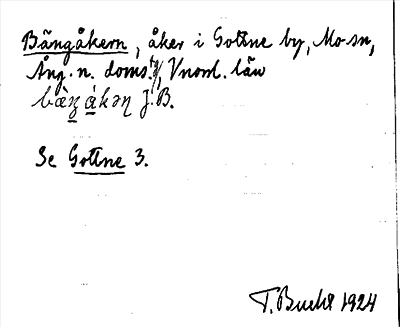 Bängåkern, åker i Gottne by, Mo sn,
Ång. n. doms., Vnorrl. län
J. B.
Se Gottne 3.
T. Bucht 1924